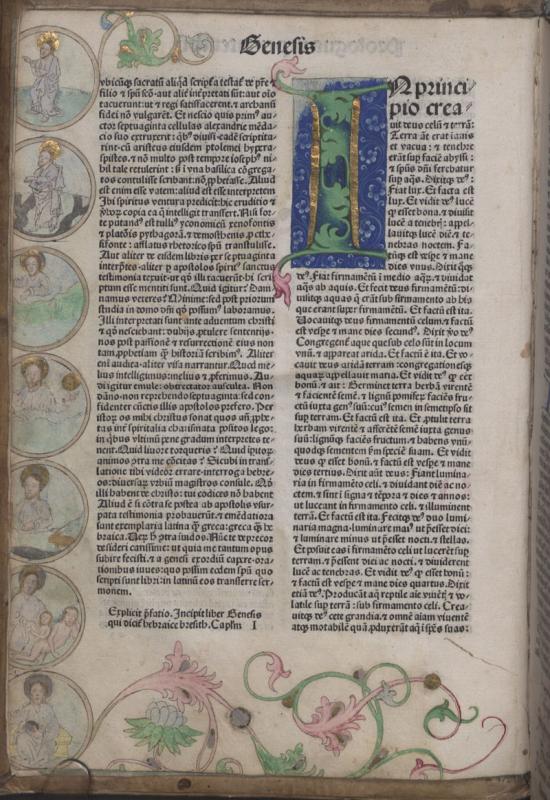 Genesis
vbicũqʒ sacratũ aliqd scripta testat de pr̃e ⁊
filio ⁊ spũ scõ aut alit̃ inṫpretati sũt: aut oĩo
tacuerunt: ut ⁊ regi satisfacerent: ⁊ archanũ
fidei nõ vulgarẽt. Et nescio quis primꝰ au-
ctor septuaginta cellulas alexandrie mẽda-
cio suo extruxerit: qbꝰ diuisi eadẽ scriptita-
rint: cũ aristeus eiusdem ptolemei hypera-
spistes: ⁊ nõ multo post tempore iosephꝰ ni-
hil tale retulerint: sʒ ĩ vna basilica cõgrega-
tos contulisse scribant: nõ ꝓphetasse. Aliud
est enim esse vatem: aliud est esse interpretem
Ibi spiritus ventura predicit: hic eruditio ⁊
ṽborʒ copia ea q̃ intelligit transfert. Nisi for-
te putand est tulliꝰ yconomicũ xenofontis
⁊ platõis pythagorã: ⁊ demosthenis ꝓ ctesi-
fonte: afflatus rhetorico spũ transtulisse.
Aut aliter de eisdem libris per septuaginta
interp̃tes: aliter ꝑ apostolos spiritꝰ sanctus
testimonia texuit: ut qd illi tacuerũt: hi scri
ptum esse mentiti sunt. Quid igitur? Dam
namus veteres? Minime: sed post priorum
studia in domo dñi qd possumꝰ laboramus.
Illi interpretati sunt ante aduentum christi
⁊ qd nesciebant: dubijs ꝓtulere sententijs.
nos post passionẽ ⁊ resurrectionẽ eius non
tam ꝓphetiam qʒ historiã scribimꝰ. Aliter
enĩ audita: aliter visa narrantur. Quod me-
lius intelligimus: melius ⁊ ꝓferimus. Au-
di igitur emule: obtrectator ausculta. Non
dãno: non reprehendo septuaginta: sed con-
fidenter cũctis illis apostolos prefero. Per
istoꝝ os mihi christus sonat quos añ ꝓphe-
tas int̃ spiritalia charismata positos lego:
in qbus vltimũ pene gradum interpretes te-
nent. Quid liuore torqueris? Quid ĩpitoꝝ
animos cõtra me cõcitas? Sicubi in trans-
latione tibi videor errare: interroga hebre-
os: diuersaꝝ vrbiũ magistros consule. Qd
illi habent de christo: tui codices nõ habent
Aliud ẽ si cõtra se postea ab apostolis vsur-
pata testimonia probauerũt: ⁊ emẽdatiora
sunt exemplaria latina qʒ greca: greca qʒ he
braica. Verʒ h̃ cõtra inuidos. Nũc te deprecor
desideri carissime: ut quia me tantum opus
subire fecisti: ⁊ a genesi exordiũ capere: ora-
tionibus iuues: quo possim eodem spũ quo
scripti sunt libri: in latinũ eos transferre ser-
monem.
Explicit p̃fatio. Incipit liber Genesis
qui dicit hebraice bresith. Caplm I
IN princi-
pio crea-
uit deus celũ ⁊ terrã:
Terra aũt erat inanis
et vacua: ⁊ tenebre
erãt sup faciẽ abyssi:
⁊ spũs dñi ferebatur
sup aqs. Dixitqʒ deꝰ:
Fiat lux. Et facta est
lux. Et vidit deꝰ lucẽ
qd esset bona: ⁊ diuisit
lucẽ a tenebris: appel-
lauitqʒ lucẽ diẽ: ⁊ te-
nebras noctem. Fa-
ctũqʒ est vespe ⁊ mane
dies vnus. Dixit quoqʒ
deꝰ. Fiat firmamẽtũ ĩ medio aqʒ: ⁊ diuidat
aq̃s ab aquis. Et fecit deus firmamẽtũ: di-
uisitqʒ aquas q̃ erãt sub firmamento ab his
que erant supr̃ firmamẽtũ. Et factũ est ita.
Vocauitqʒ deus firmamentũ celum: ⁊ factũ
est vespe ⁊ mane dies secundꝰ. Dixit ṽo deꝰ
Congregent̃ aque que sub celo sũt in locum
vnũ: ⁊ appareat arida. Et factũ ẽ ita. Et vo-
cauit deus aridã terram: congregationesqʒ
aquaꝝ appellauit maria. Et vidit deꝰ qd eet
bonũ: ⁊ ait: Germinet terra herbã virentẽ
⁊ faciente semẽ: ⁊ lignũ pomiferʒ faciẽs fru-
ctũ iuxta genꝰ suũ: cuiꝰ semen in semetipso sit
sup terram. Et factũ est ita. Et ꝓtulit terra
herbam virentẽ ⁊ afferẽtẽ semẽ iuxta genus
suũ: lignũqʒ faciẽs fructum: ⁊ habens vnũ-
quodqʒ sementem scd̃m speciẽ suam. Et vidit
deus qd esset bonũ: ⁊ factũ est vespe ⁊ mane
dies tertius. Dixit aũt deus: Fiant lumina-
ria in firmamẽto celi: ⁊ diuidant diẽ ac no-
ctem: ⁊ sint ĩ signa ⁊ tẽpora ⁊ dies ⁊ annos:
ut luceant in firmamento celi: ⁊ illuminent
terram. Et factũ est ita. Fecitqʒ deꝰ duo lumi-
naria magna: luminare maiꝰ ut p̃esset diei:
⁊ luminare minus ut p̃esset nocti: ⁊ stellas.
Et posuit eas ĩ firmamẽto celi ut lucerẽt sup
terram: ⁊ p̃essent diei ac nocti: ⁊ diuiderent
lucẽ ac tenebras. Et vidit deꝰ qd esset bonũ:
⁊ factũ est vespe ⁊ mane dies quartus. Dixit
etiã deꝰ. Producãt aq̃ reptile aĩe viuẽtꝭ ⁊ vo-
latile sup terrã: sub firmamento celi. Crea-
uitqʒ deꝰ cete grandia: ⁊ omnẽ aĩam viuentẽ
atqʒ motabilẽ quã ꝓduxerãt aq̃ ĩ sp̃es suas: